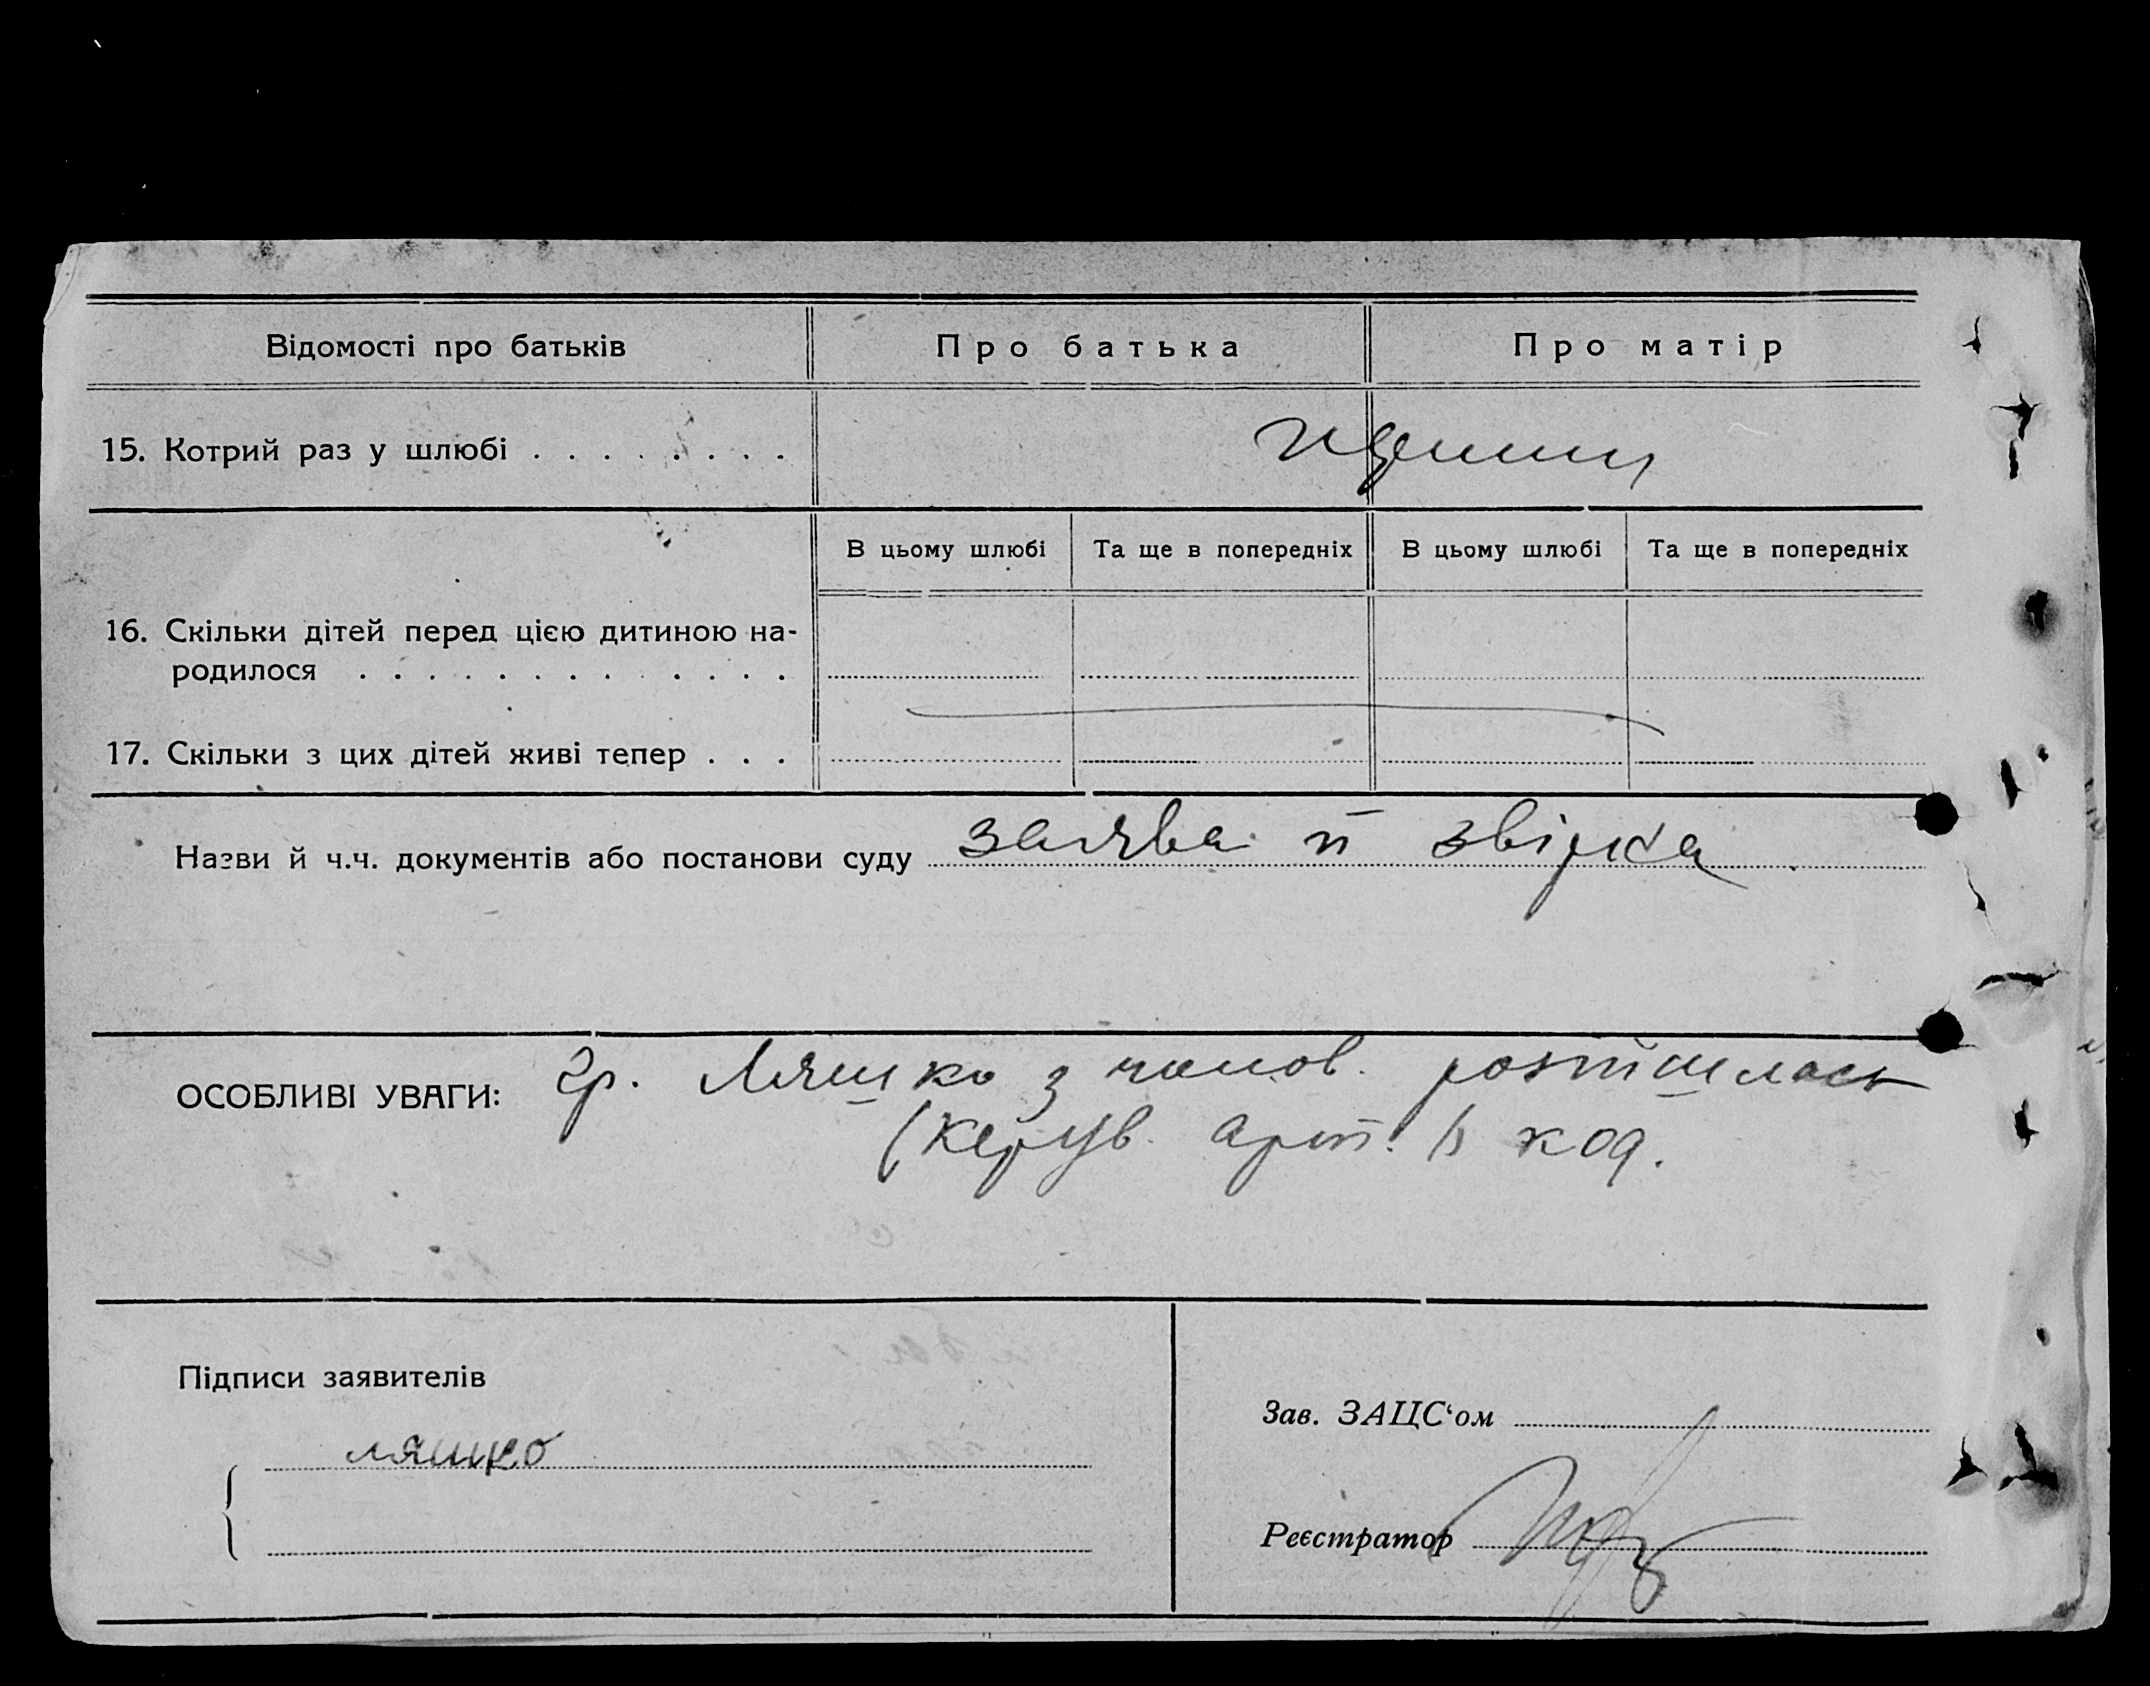 Відомості про батьків
Про батька
Про матір
15. Котрий раз у шлюбі . . . . . . . .
В цьому шлюбі
Та ще в попередніх
В цьому шлюбі
Та ще в попередніх
16. Скільки дітей перед цією дитиною на-
родилося . . . . . . . . . . . . .
17. Скільки з цих дітей живі тепер . . .
Назви й ч.ч. документів або постанови суду заява й звірка
ОСОБЛИВІ УВАГИ: гр. Ляшко з чолов. розійшлась
(керув. арт.
Підписи заявителів
ляшко
Зав. ЗАЦС‘ом
Реєстратор